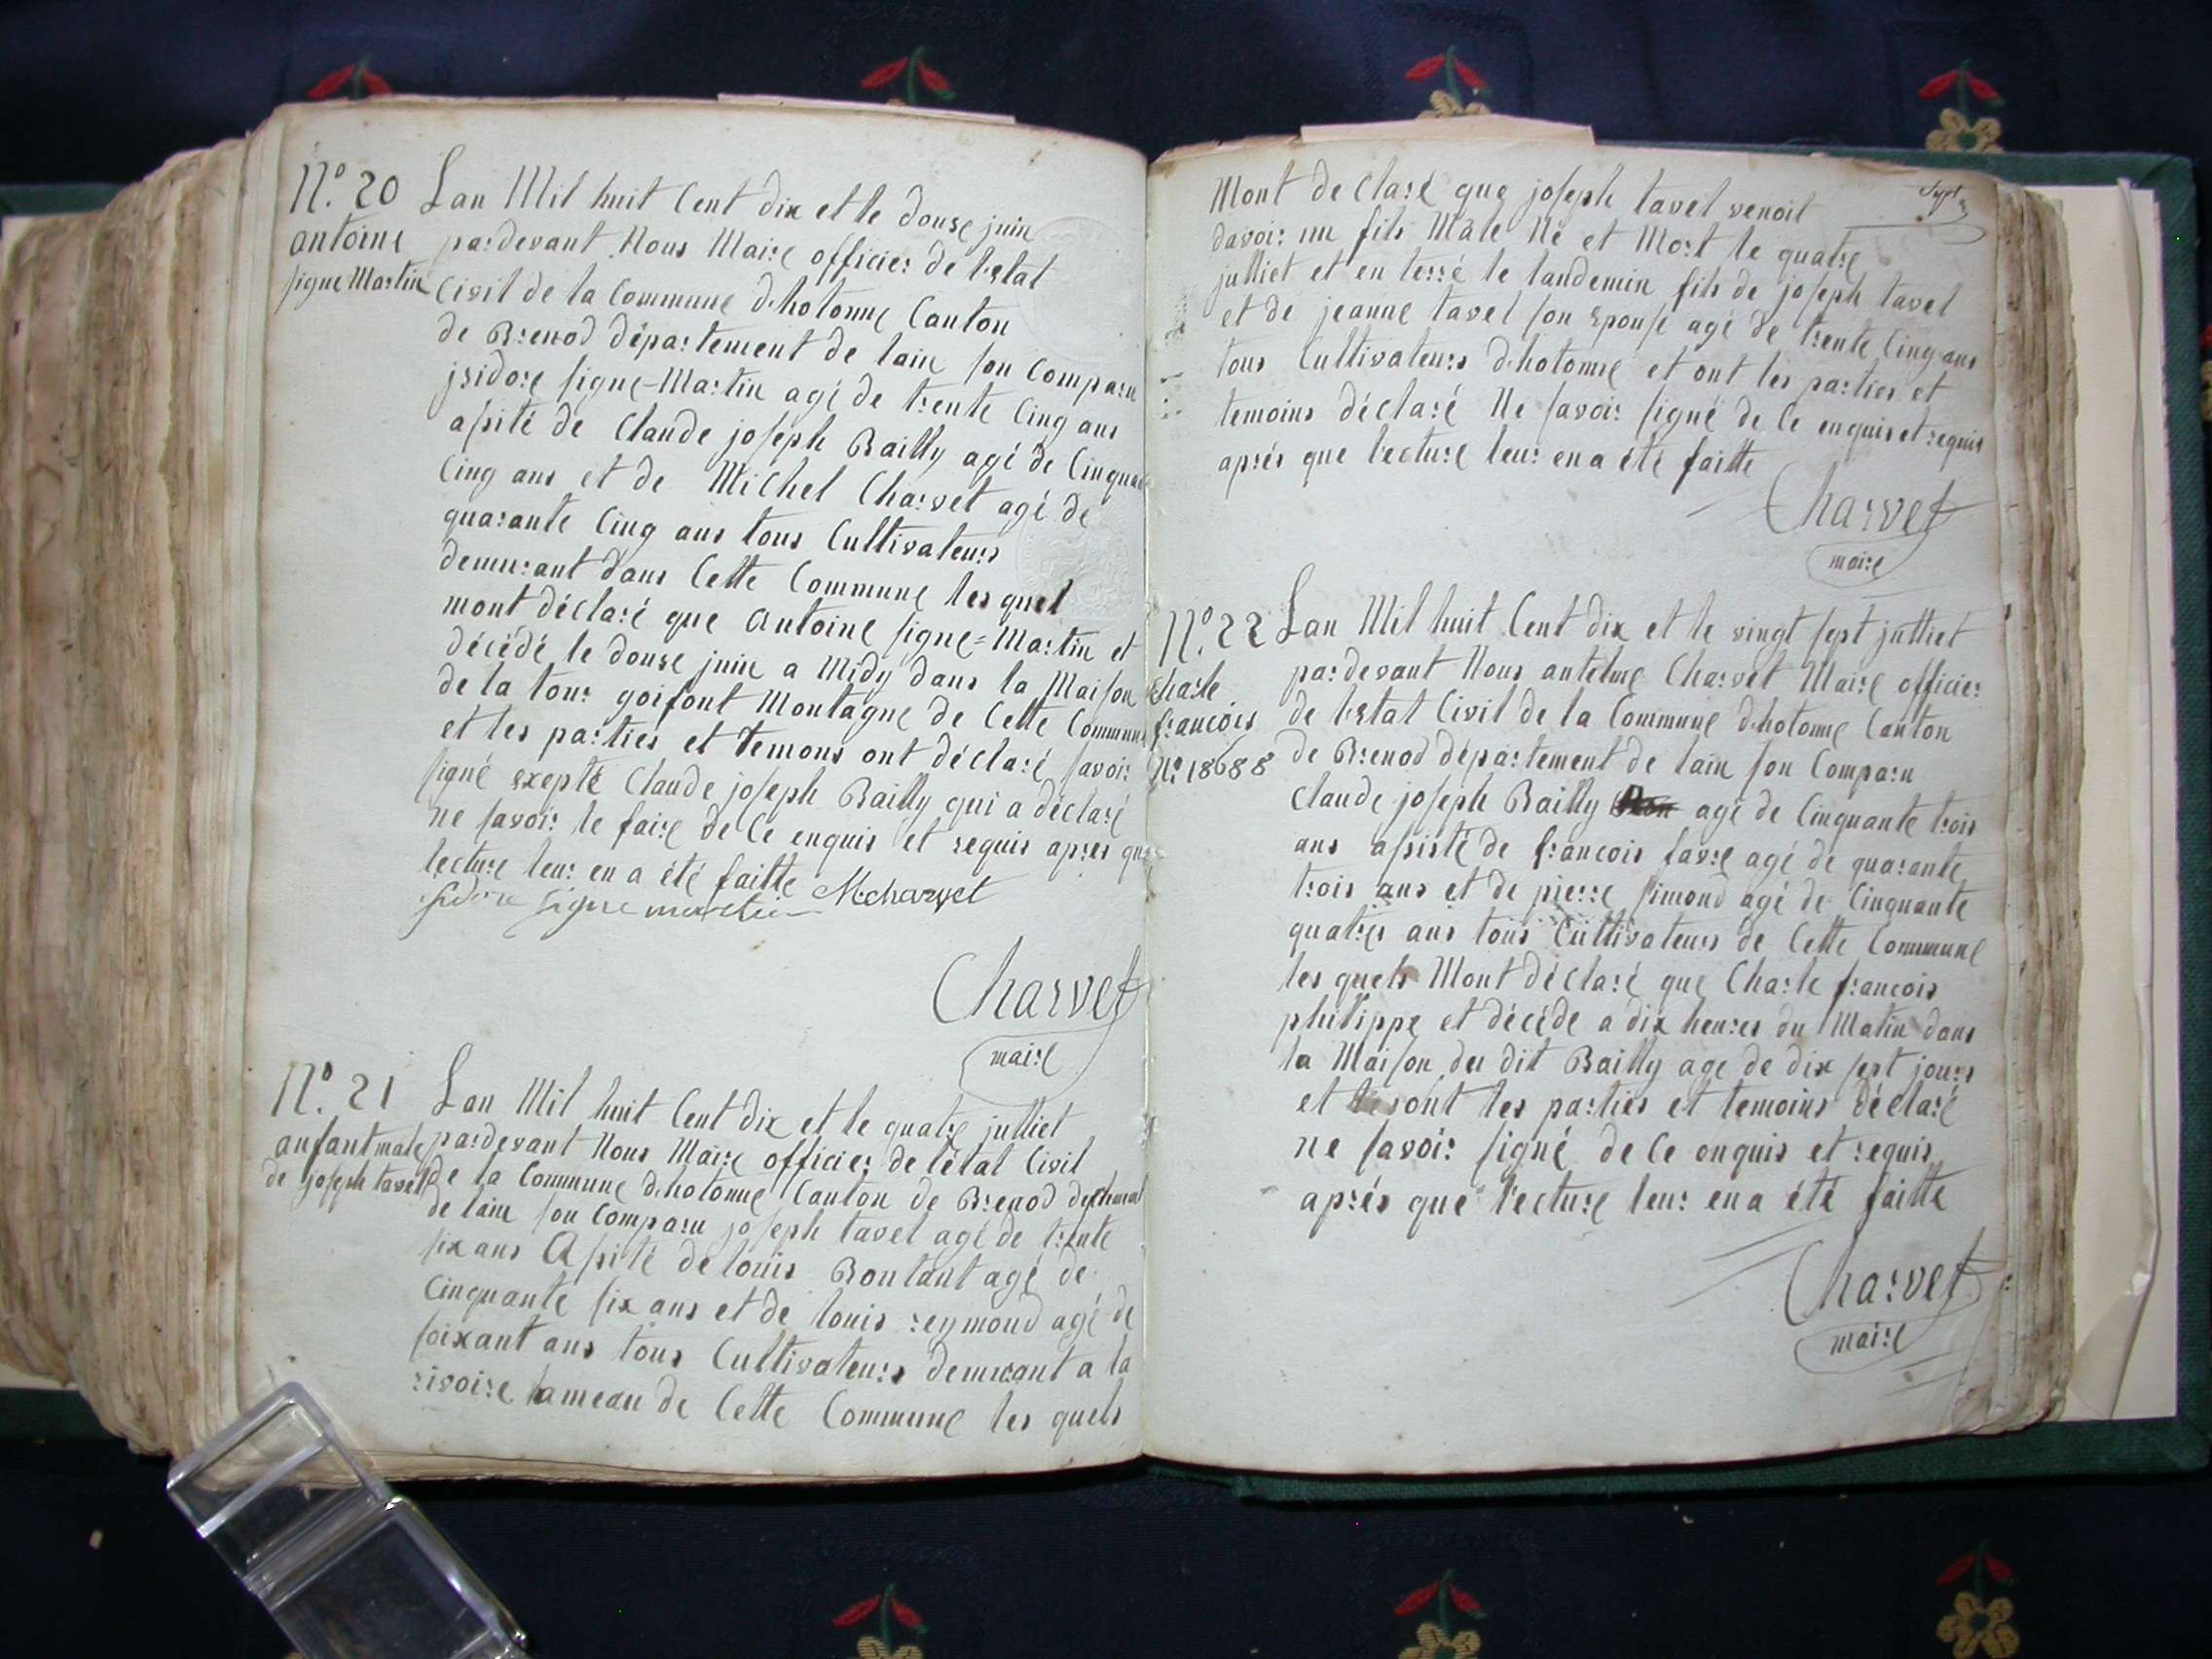 N.º 20
antoine
signe Martin
Lan Mil huit Cent dix et le douse juin
pardevant Nous Maire officier de l'estat
Civil de la Commune d'hotonne Canton
de Brenod département de lain son Comparu
jsidore signe-Martin agé de trente Cinq ans
asité de Claude joseph Bailly agé de Cinquante
Cinq ans et de Michel Charvet agé de
quarante Cinq ans tous Cultivateurs
demurant dans Cette Commune les quel
mont déclaré que Antoine signe=Martin et
décédé le douse juin a Midy dans la Maison
de la tour goifont Montagne de Cette Commune
et les parties et temons ont déclaré savoir
signé exepté Claude joseph Bailly qui a déclaré
ne savoir le faire de Ce enquis et requis apres que
lecture leur en a été faitte M charvet
jsidore signe martin
Charvet
maire
N.º 21
anfant male
de joseph tavel
Lan Mil huit Cent dix et le quatre julliet
pardevant Nous Maire officier de létat Civil
de la Commune d'hotonne Canton de Brenod
de lain son Comparu joseph tavel agé de trente
six ans Asité de louis Boutant agé de
Cinquante six ans et de louis reymond agé de
soixant ans tous Cultivateurs demurant a la
rivoire hameau de Cette Commune les quels
Sept
Mont declaré que joseph tavel venoit
davoir un fils Mâle Né et Mort le quatre
julliet et en terré le landemin fils de joseph tavel
et de jeanne tavel son Epouse agé de trente Cinq ans
tous Cultivateurs d'hotonne et ont les parties et
temoins déclaré Ne savoir signé de Ce enquis et requis
aprés que lecture leur en a été faitte
Charvet
maire
N.º 22
Charle
francois
Nº 18688
Lan Mil huit Cent dix et le vingt sept julliet
pardevant Nous antelme Charvet Maire officier
de l'estat Civil de la Commune d'hotonne Canton
de Brenod département de lain son Comparu
Claude joseph Bailly agé de Cinquante trois
ans asisté de francois favre agé de quarante
trois ans et de pierre simond agé de Cinquante
quatres ans tous Cultivateurs de Cette Commune
les quels Mont déclaré que Charle francois
philippe et décéde a dix heures du Matin dans
la Maison du dit Bailly age de dix sept jours
et ont les parties et temoins déclaré
ne savoir signé de Ce enquis et requis
aprés que lecture leur en a été faitte
Charvet
maire